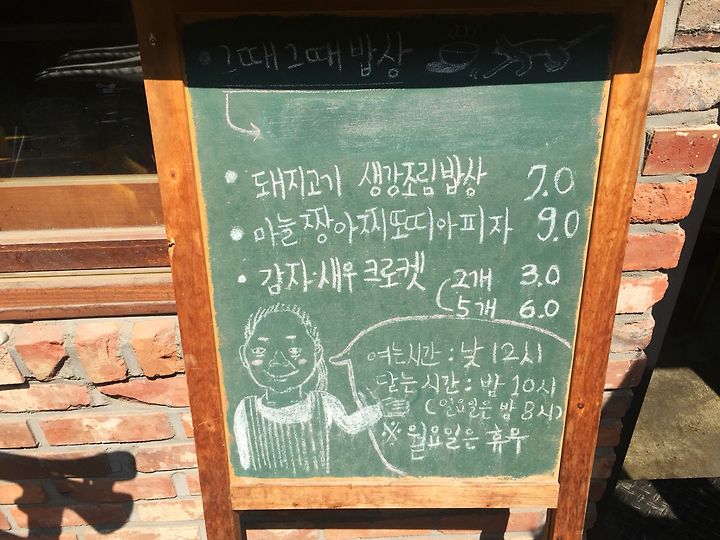 • 그때그때밥상
• 돼지고기 생강조림밥상 7.0
• 마늘짱아찌또띠아피자 9.0
• 감자·새우크로켓 2개 3.0
5개 6.0
여는시간 : 낮 12시
닫는시간 : 밤 10시
(일요일은 밤 8시)
※ 월요일은 휴무